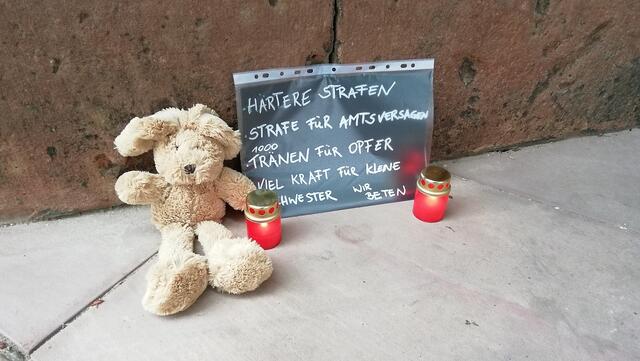 HÄRTERE STRAFEN
STRAFE FÜR AMTSVERSAGEN
1000
TRÄNEN FÜR OPFER
VIEL KRAFT FÜR KLENE
HWESTER WIR
BETEN